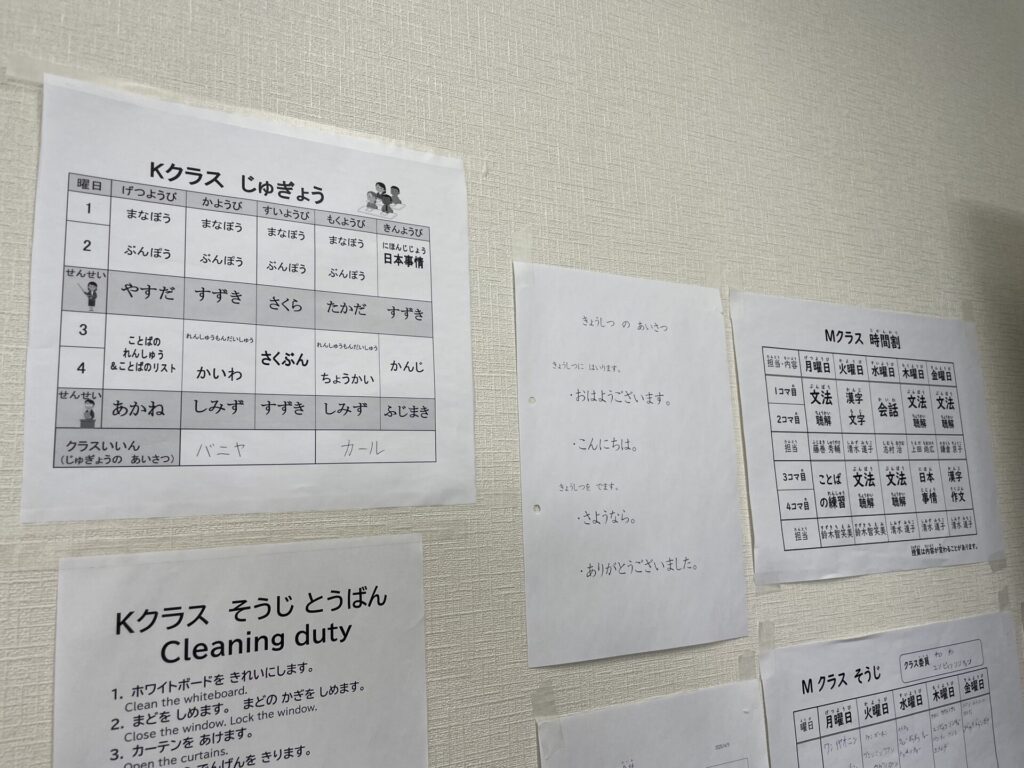 Kクラス じゅぎょう
曜日 げつようび かようび すいようび もくようび きんようび
1 まなぼう まなぼう まなぼう まなぼう にほんじじょう
日本事情
2 ぶんぽう ぶんぽう ぶんぽう ぶんぽう
せんせい やすだ すずき さくら たかだ すずき
3 ことばの れんしゅうもんだいしゅう さくぶん れんしゅうもんだいしゅう かんじ
れんしゅう
4 &ことばのリスト かいわ ちょうかい
せんせい あかね しみず すずき しみず ふじまき
クラスいいん バニヤ カール
(じゅぎょうの あいさつ)
Kクラス そうじ とうばん
Cleaning duty
1. ホワイトボードを きれいにします。
Clean the whiteboard.
2. まどを しめます。 まどの かぎを しめます。
Close the window. Lock the window.
3. カーテンを あけます。
Open the curtains.
でんげんを きります。
きょうしつ の あいさつ
きょうしつに はいります。
・おはようございます。
・こんにちは。
きょうしつを でます。
・さようなら。
・ありがとうございました。
Mクラス 時間割
担当・内容 月曜日 火曜日 水曜日 木曜日 金曜日
1コマ目 文法 漢字 会話 文法 文法
2コマ目 聴解 文字 聴解 聴解
担当 藤巻 秀輔 清水 道子 志村 治 上田 尚広 鎌倉 京子
3コマ目 ことば 文法 文法 日本 漢字
4コマ目 の練習 聴解 聴解 事情 作文
担当 鈴木智笑美 鈴木智笑美 清水 道子 清水 道子 清水 道子
授業は内容が変わることがあります。
Mクラス そうじ
クラス委員
曜日 月曜日 火曜日 水曜日 木曜日 金曜日